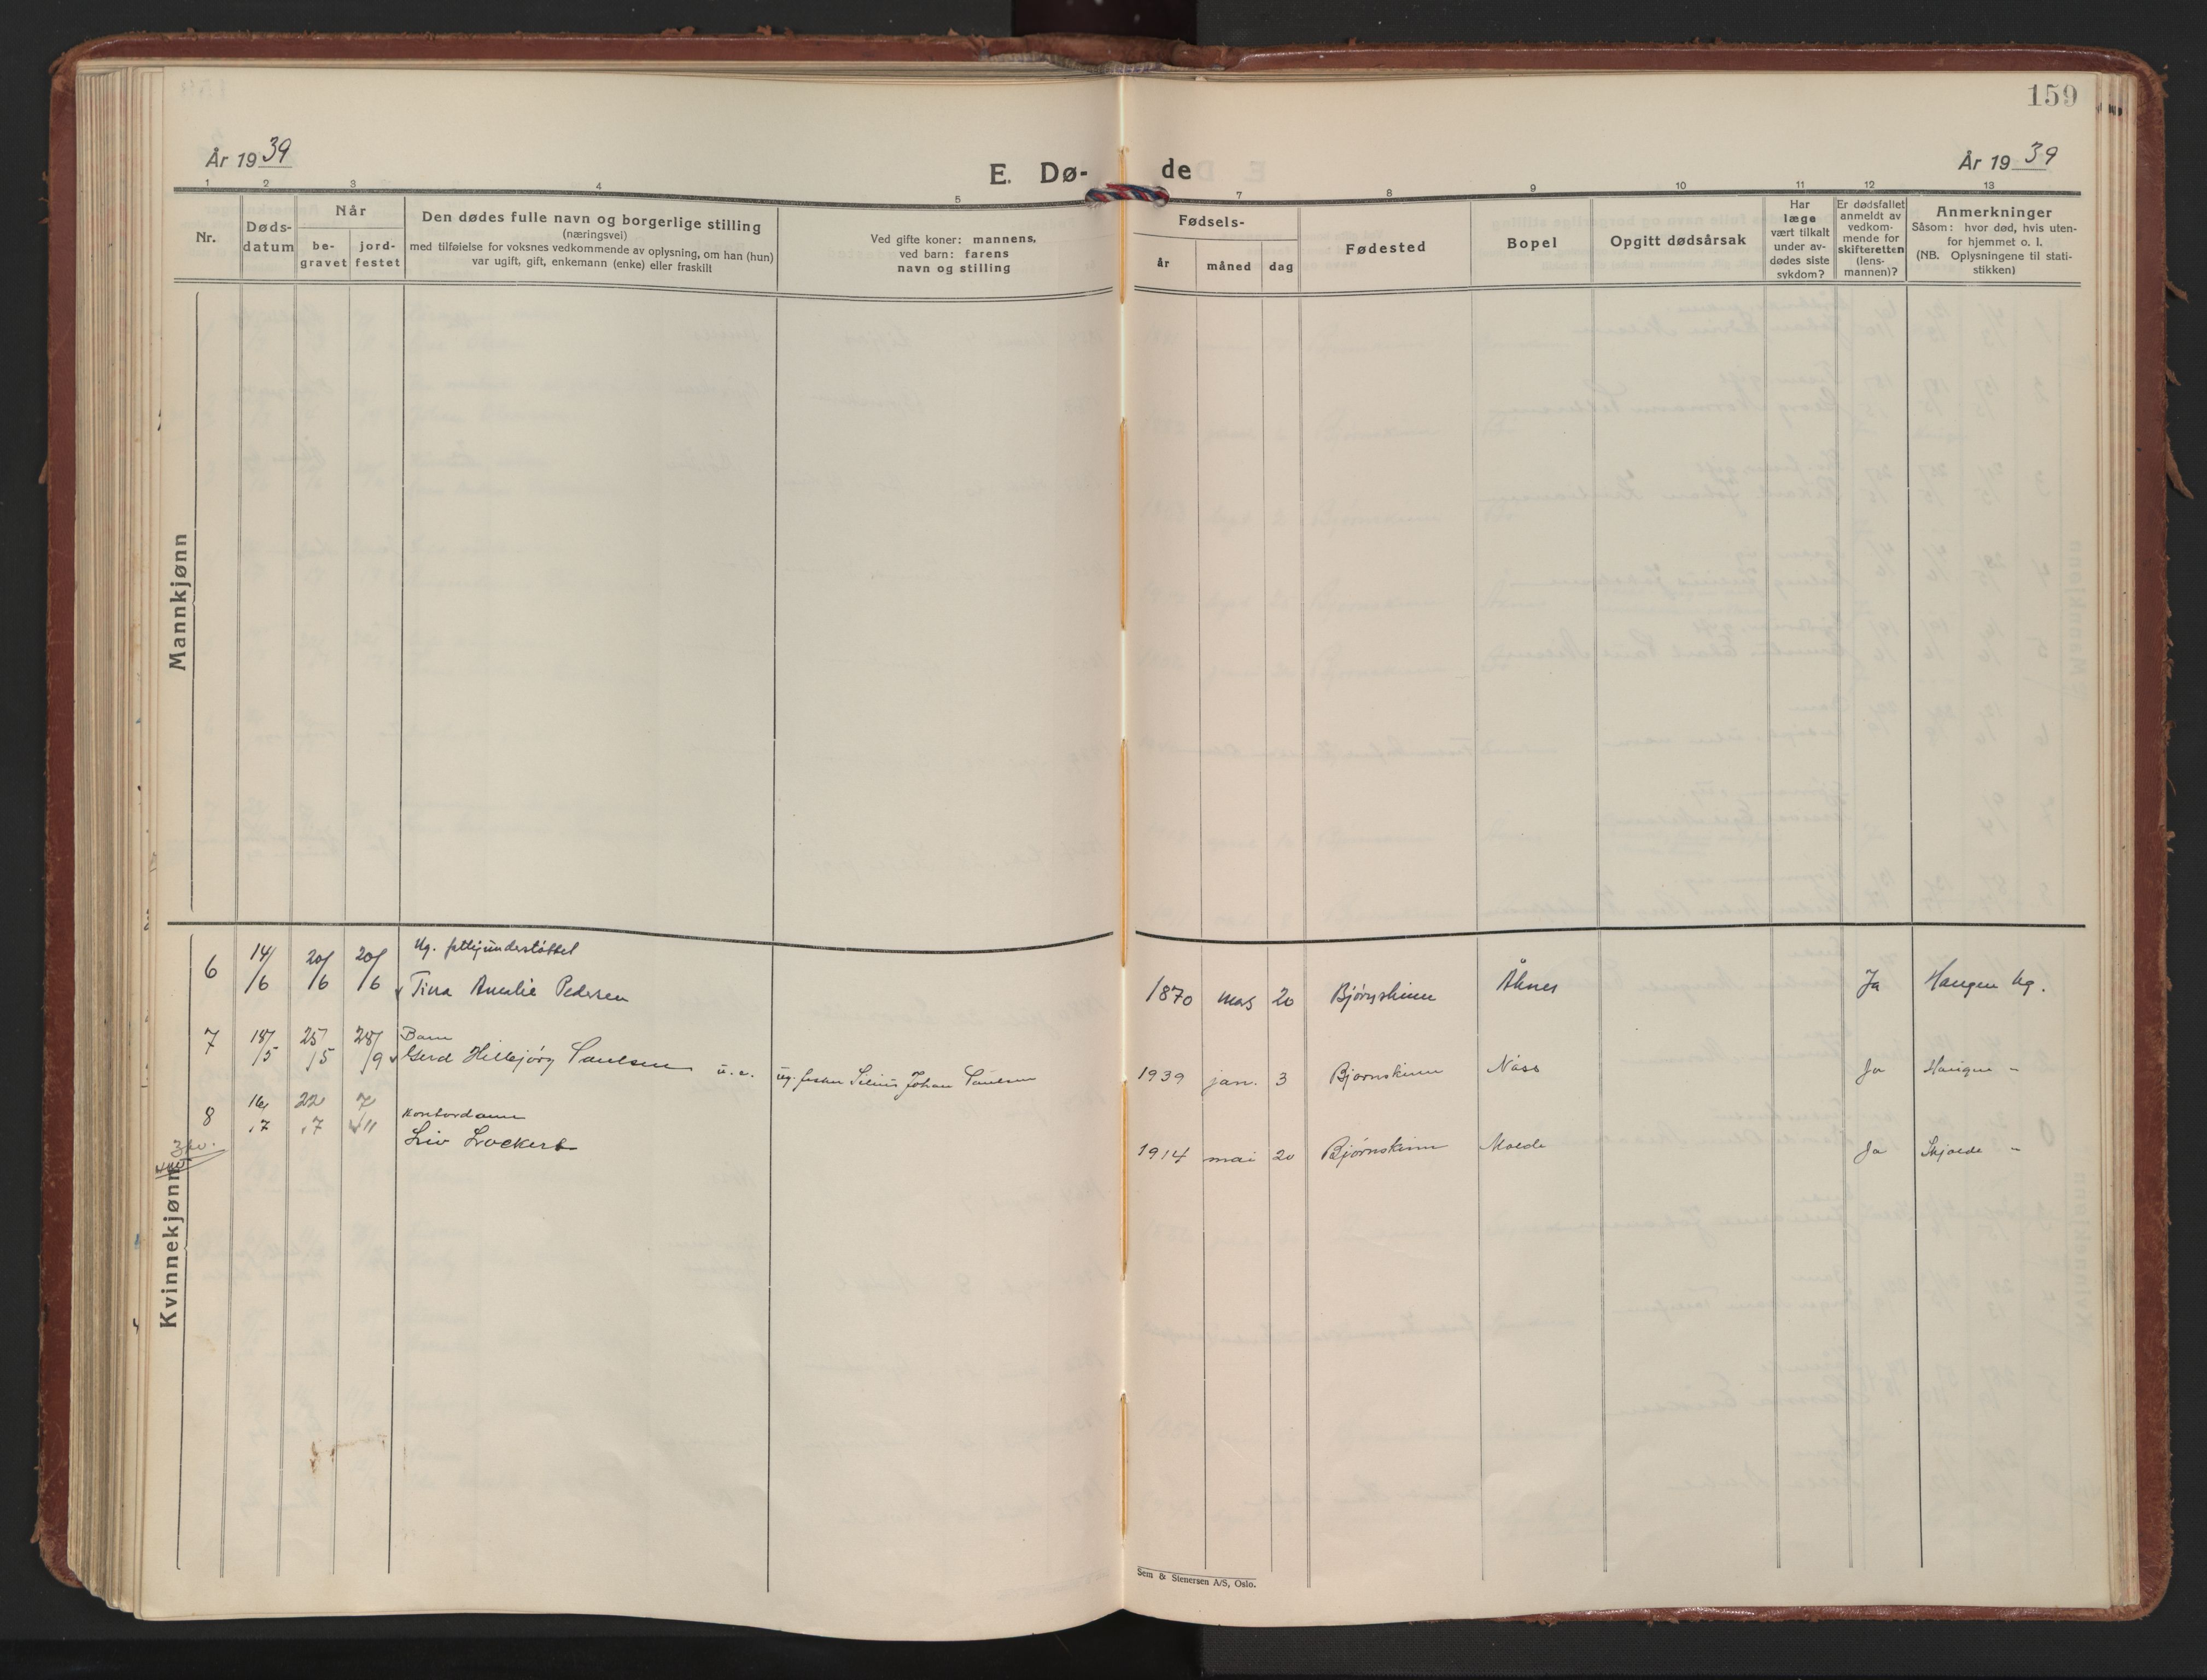 159
År 1939
E. Dø-
de
År 1939
1 2 3 4 5 7 8 9 10 11 12 13
Nr.
Døds-
datum
Når
be-
gravet
jord-
festet
Den dødes fulle navn og borgerlige stilling
(næringsvei)
med tilføielse for voksnes vedkommende av oplysning, om han (hun)
var ugift, gift, enkemann (enke) eller fraskilt
Ved gifte koner: mannens,
ved barn: farens
navn og stilling
Fødsels-
år
måned
dag
Fødested
Bopel
Opgitt dødsårsak
Har
læge
vært tilkalt
under av-
dødes siste
sykdom?
Er dødsfallet
anmeldt av
vedkom-
mende for
skifteretten
(lens-
mannen)?
Anmerkninger
Såsom: hvor død, hvis uten-
for hjemmet o. l.
(NB. Oplysningene til stati-
stikken)
Mannkjønn
Ug. fattigunderstöttet
6 14/6 20/6 20/6 Tina Amalie Pedersen 1870 mars 20 Bjørnskinn Åknes Ja Haugen kg.
Barn
7 18/5 25/5 28/9 Gerd Hillbjörg Paulsen u. e. ug. fisker Johan Paulsen 1939 jan. 3 Bjørnskinn Näss Ja Haugen "
Kontordame
8 16/7 22/7 7/11 Liv Lockert 1914 mai 20 Bjørnskinn Molde Ja "
Kvinnekjønn
Sem & Stenersen A/S, Oslo.